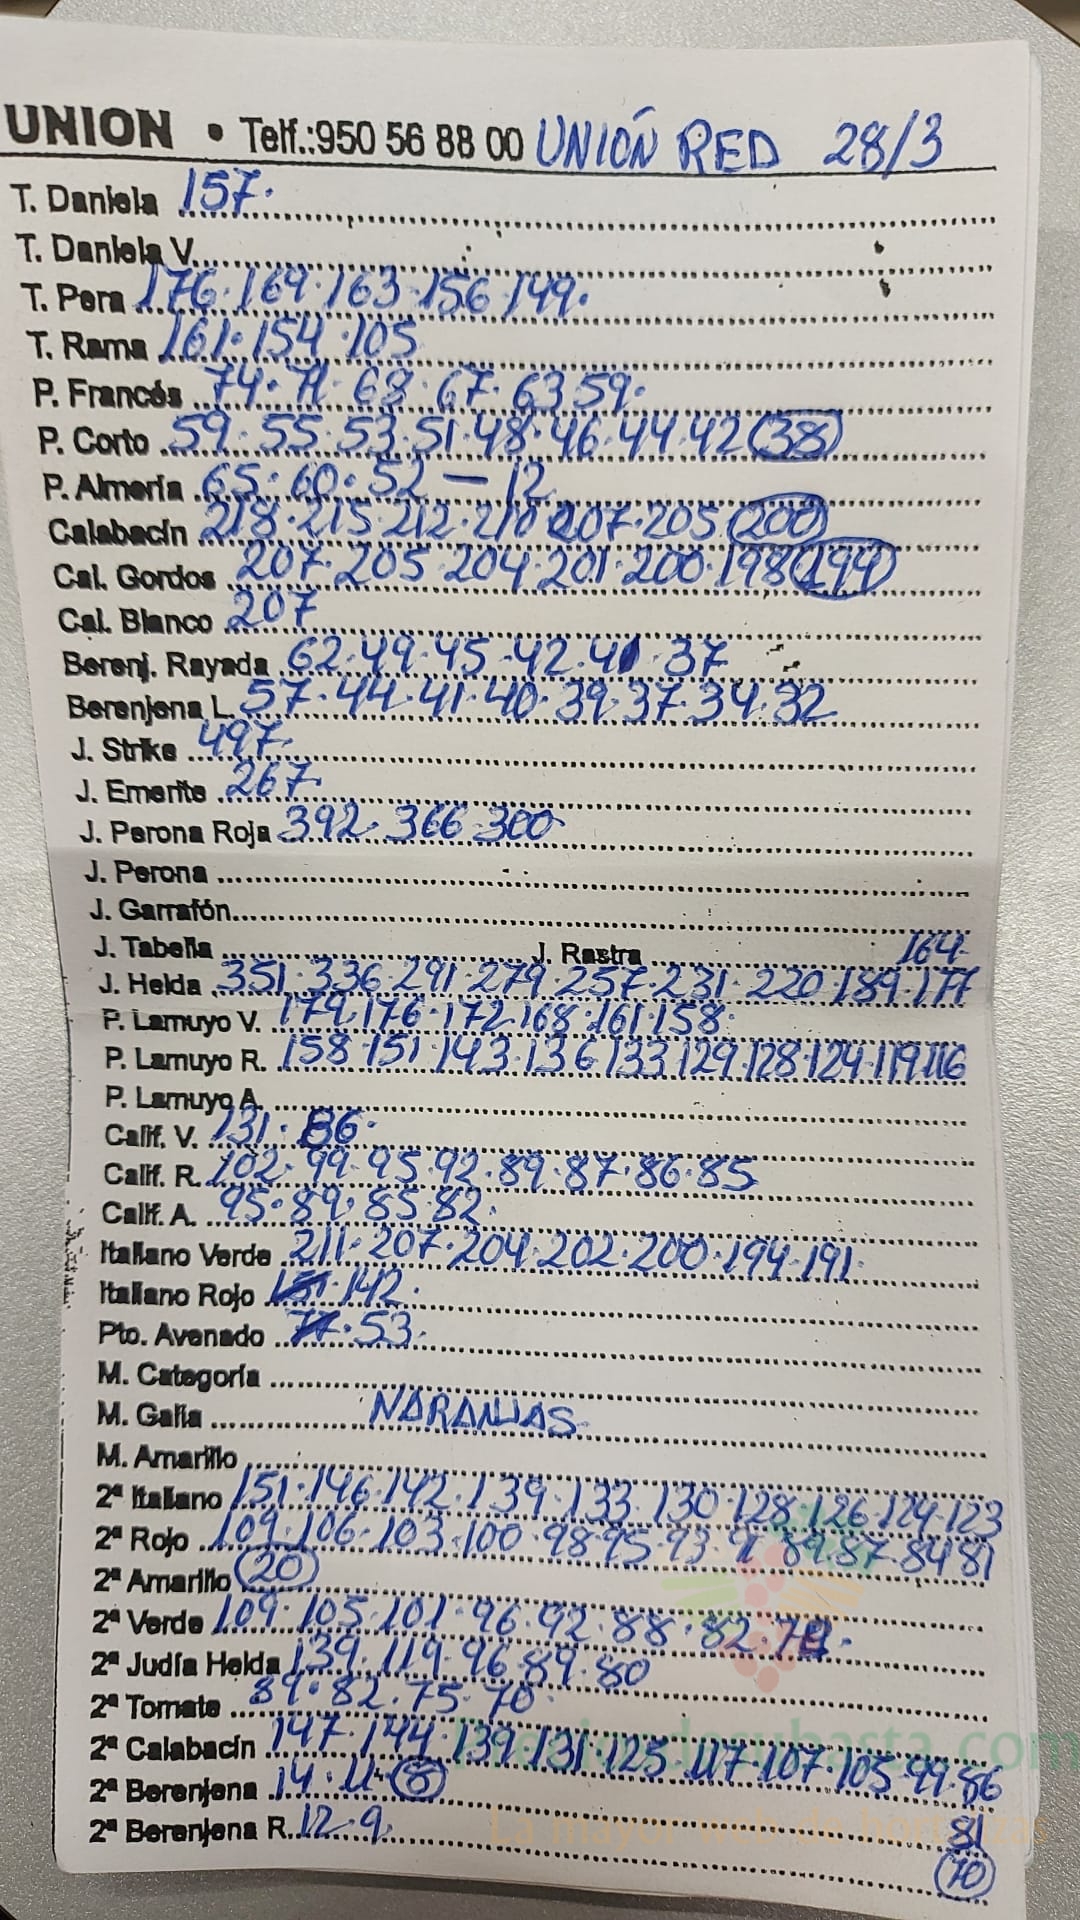 UNION • Telf.:950 56 88 00 UNIÓN RED 28/3
T. Daniela 157.
T. Daniela V.
T. Pera 176.169.163.156.149.
T. Rama 161.154.105
P. Francés 74.71.68.67.63 59.
P. Corto 59.55.53.51.48.46.44.42 (38)
P. Almería 65.60.52 — 12
Calabacín 218.215.212.210 207.205 (200)
Cal. Gordos 207.205.204.201.200.198 (194)
Cal. Blanco 207
Berenj. Rayada 62.49.45.42.41.37
Berenjena L. 57.44.41.40.39.37.34.32
J. Strike 497.
J. Emerite 267.
J. Perona Roja 392.366 300
J. Perona
J. Garrafón
J. Tabella J. Rastra 164.
J. Helda 351.336.291.279.257.231.220.189.177
P. Lamuyo V. 179.176.172.168.161.158.
P. Lamuyo R. 158.151.143.136.133.129.128.124.119.116
P. Lamuyo A.
Calif. V. 131.86.
Calif. R. 102.99.95.92.89.87.86.85
Calif. A. 95.89.85.82.
Italiano Verde 211.207.204.202.200.194.191.
Italiano Rojo 142.
Pto. Avenado 53.
M. Categoría
M. Galia NARANJAS
M. Amarillo
2ª Italiano 151.146.142.139.133.130.128.126.124.123
2ª Rojo 109.106.103.100.98.95.93.91 89.87.84 81
2ª Amarillo (20)
2ª Verde 109.105.101.96.92.88.82.
2ª Judía Helda 139.119.96.89.80
2ª Tomate 89.82.75.70.
2ª Calabacín 147.144.139.131.125.117.107.105.99.86
2ª Berenjena 14.11.(8)
81
2ª Berenjena R. 12.9.
(70)
La mayor web de hortalizas